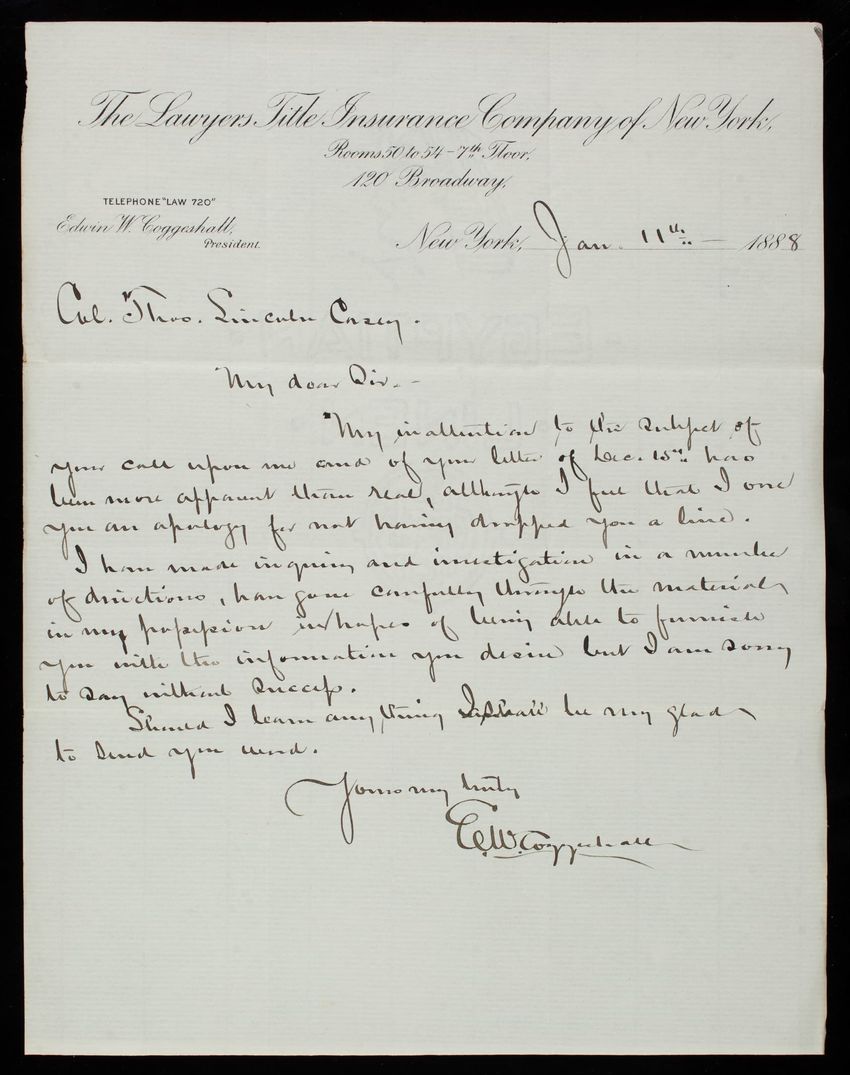 The Lawyers Title Insurance Company of New York,
Rooms 50 to 54 - 7th Floor,
120 Broadway,
TELEPHONE "LAW 720"
Edwin W. Coggeshall,
President.
New York, Jan. 11th 1888
Col. Thos. Lincoln Casey.
My dear Sir. -
My inattention to the subject of
your call upon me and of your letter of Dec. 15th has
been more apparent than real, although I feel that I owe
you an apology for not having dropped you a line.
I have made inquiry and investigation in a number
of directions, have gone carefully through the material
in my possession in hopes of being able to furnish
you with the information you desire but I am sorry
to say without success.
Should I learn any thing I shall be very glad
to send you word.
Yours very truly
E. W. Coggeshall